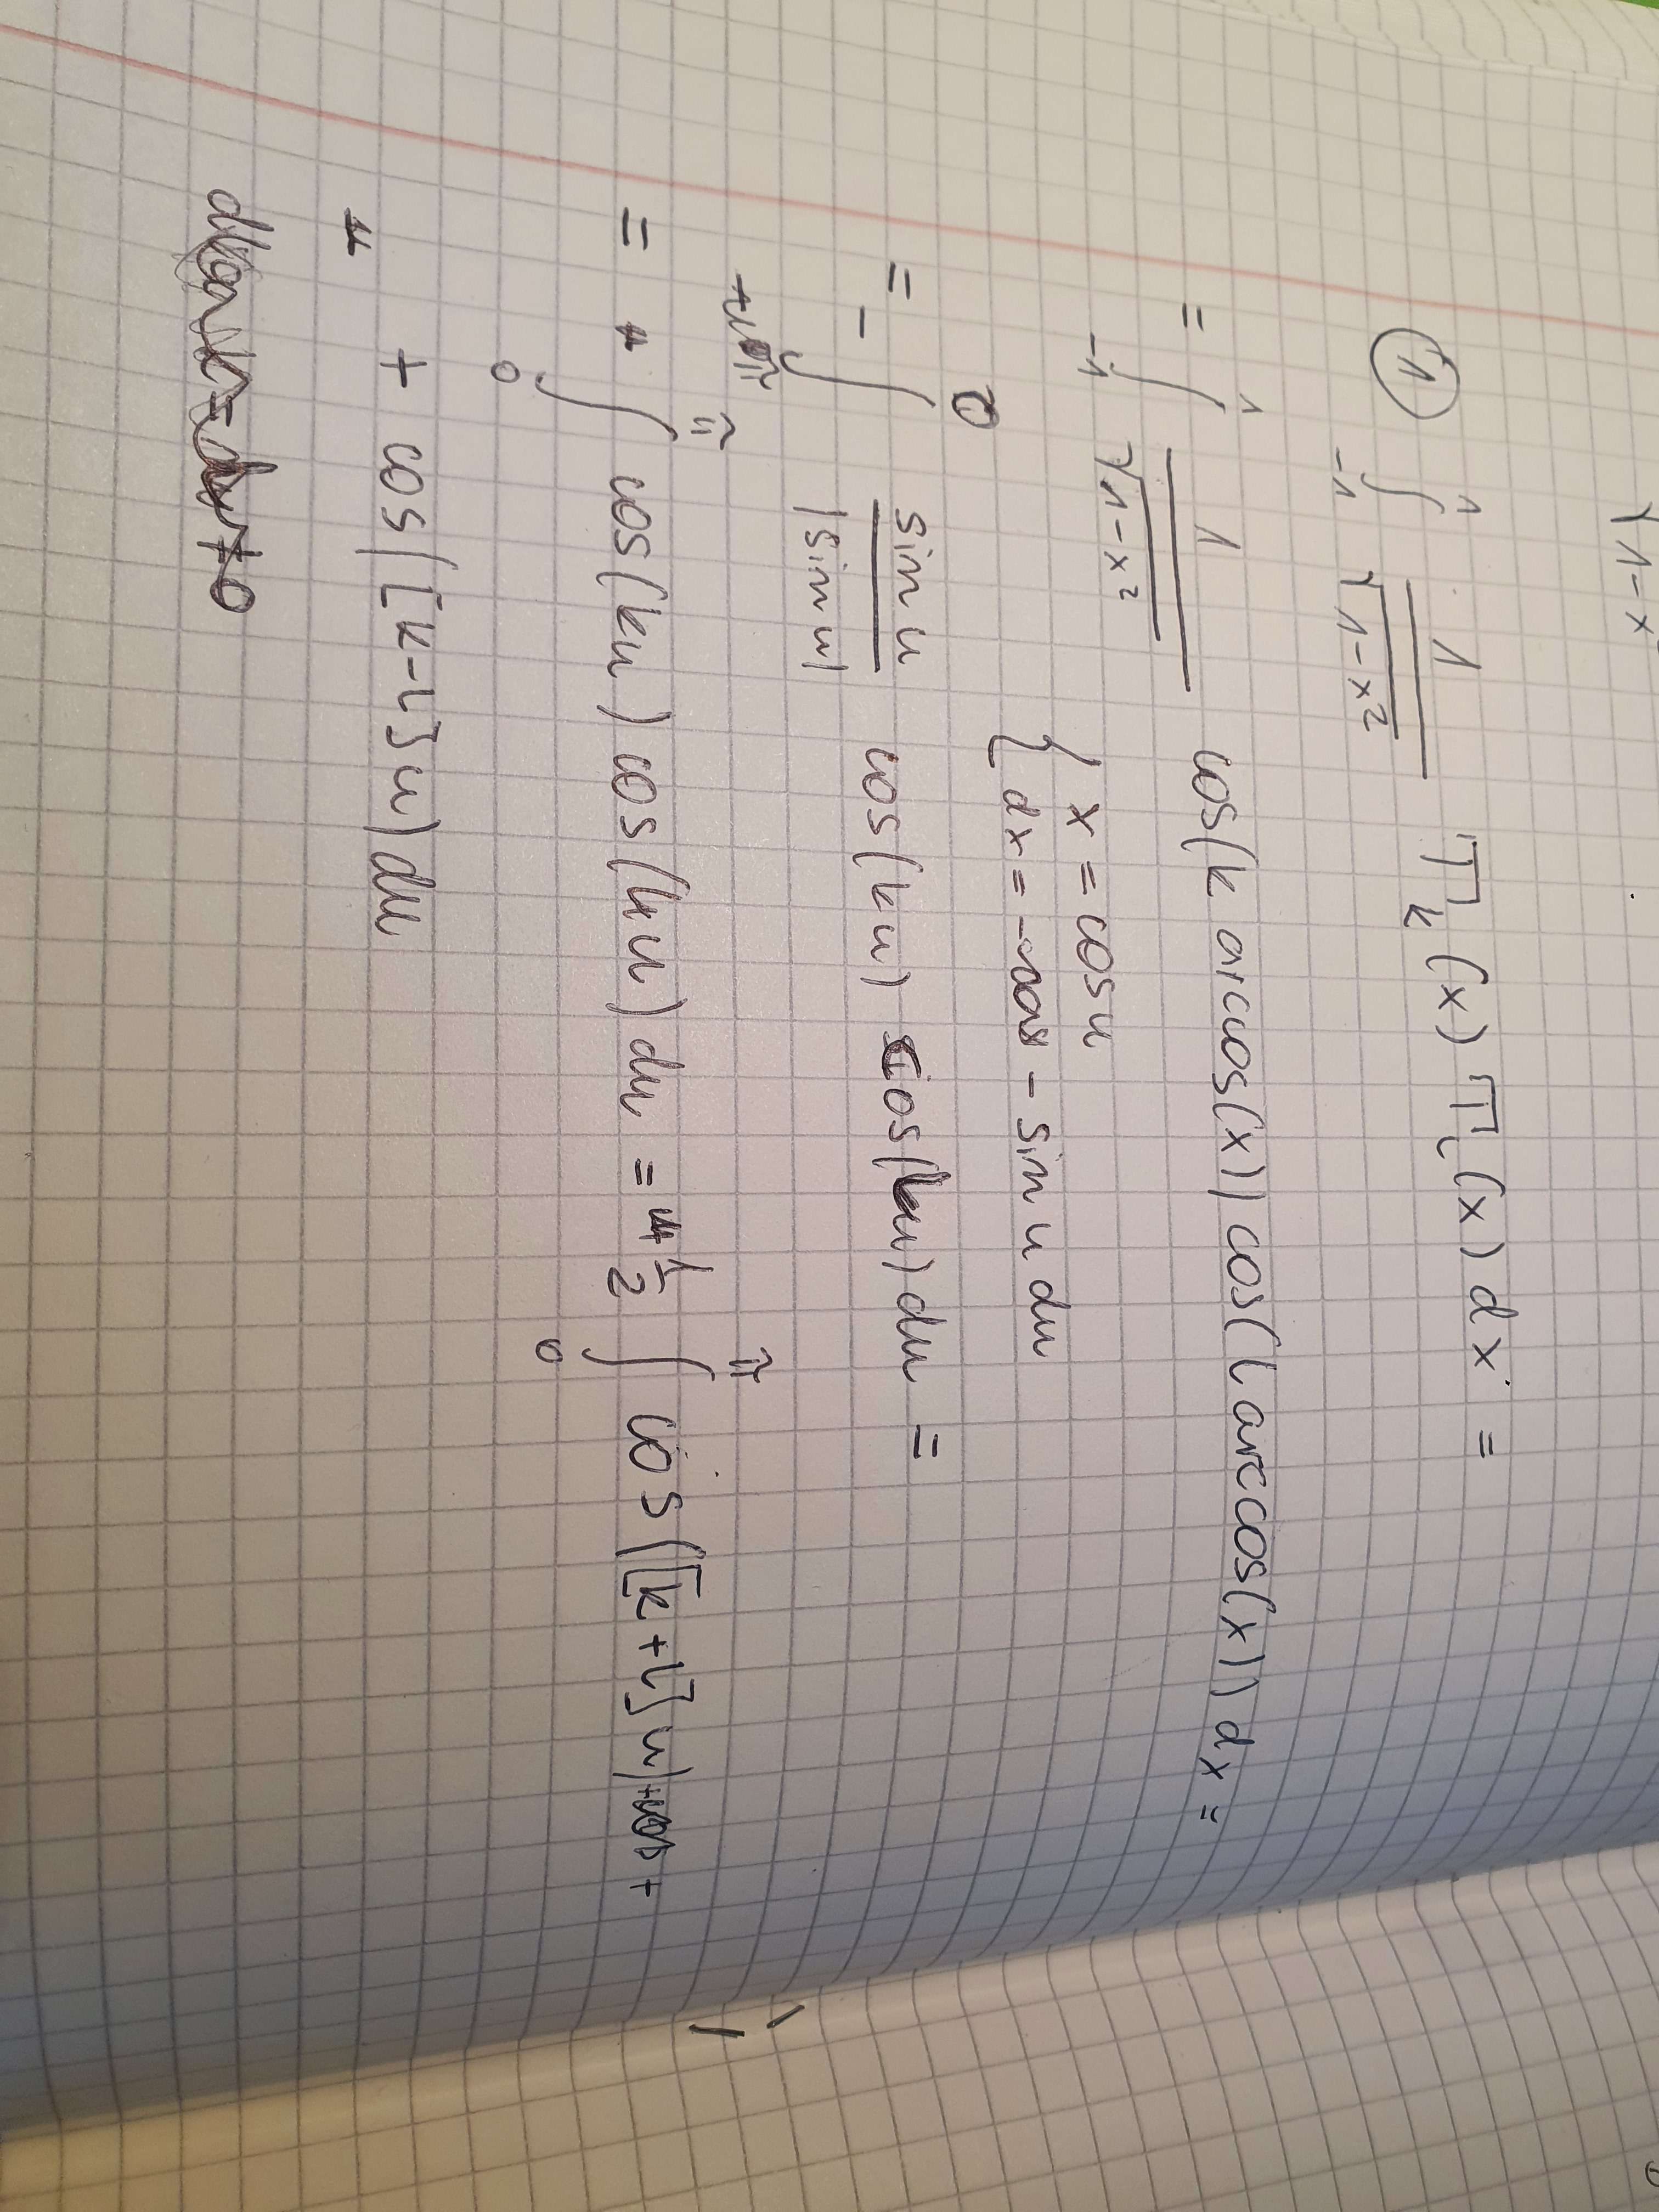 √1-x
① ∫_{-1}^{1} 1/√(1-x²) T_k(x) T_l(x) dx =
= ∫_{-1}^{1} 1/√(1-x²) cos(k arccos(x)) cos(l arccos(x)) dx =
{ x = cos u
dx = - sin u du
= - ∫_{π}^{0} sin u/|sin u| cos(ku) cos(lu) du =
= ∫_{0}^{π} cos(ku) cos(lu) du = 1/2 ∫_{0}^{π} cos([k+l]u) +
+ cos([k-l]u) du
dla k = l ≠ 0